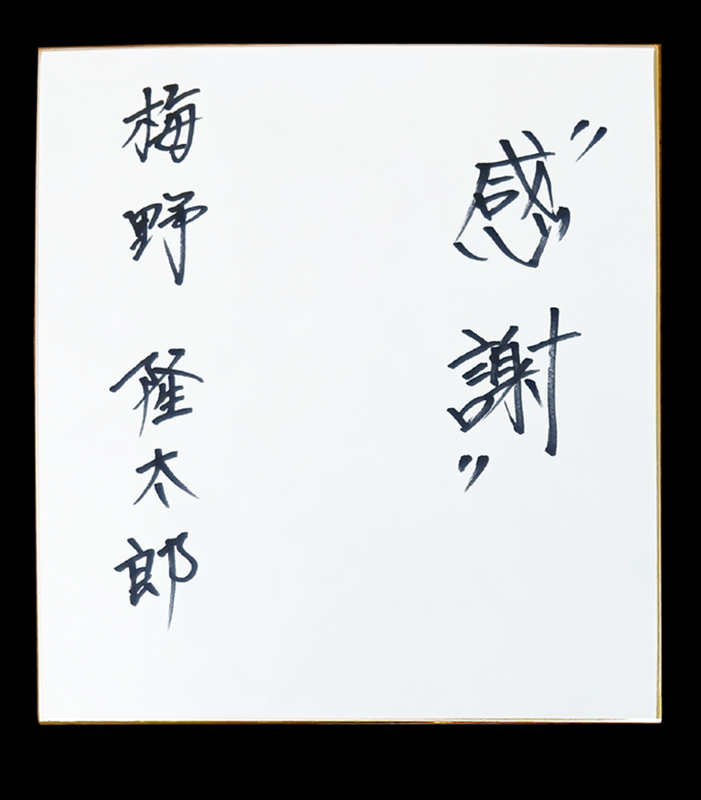 "感謝"
梅野 隆太郎